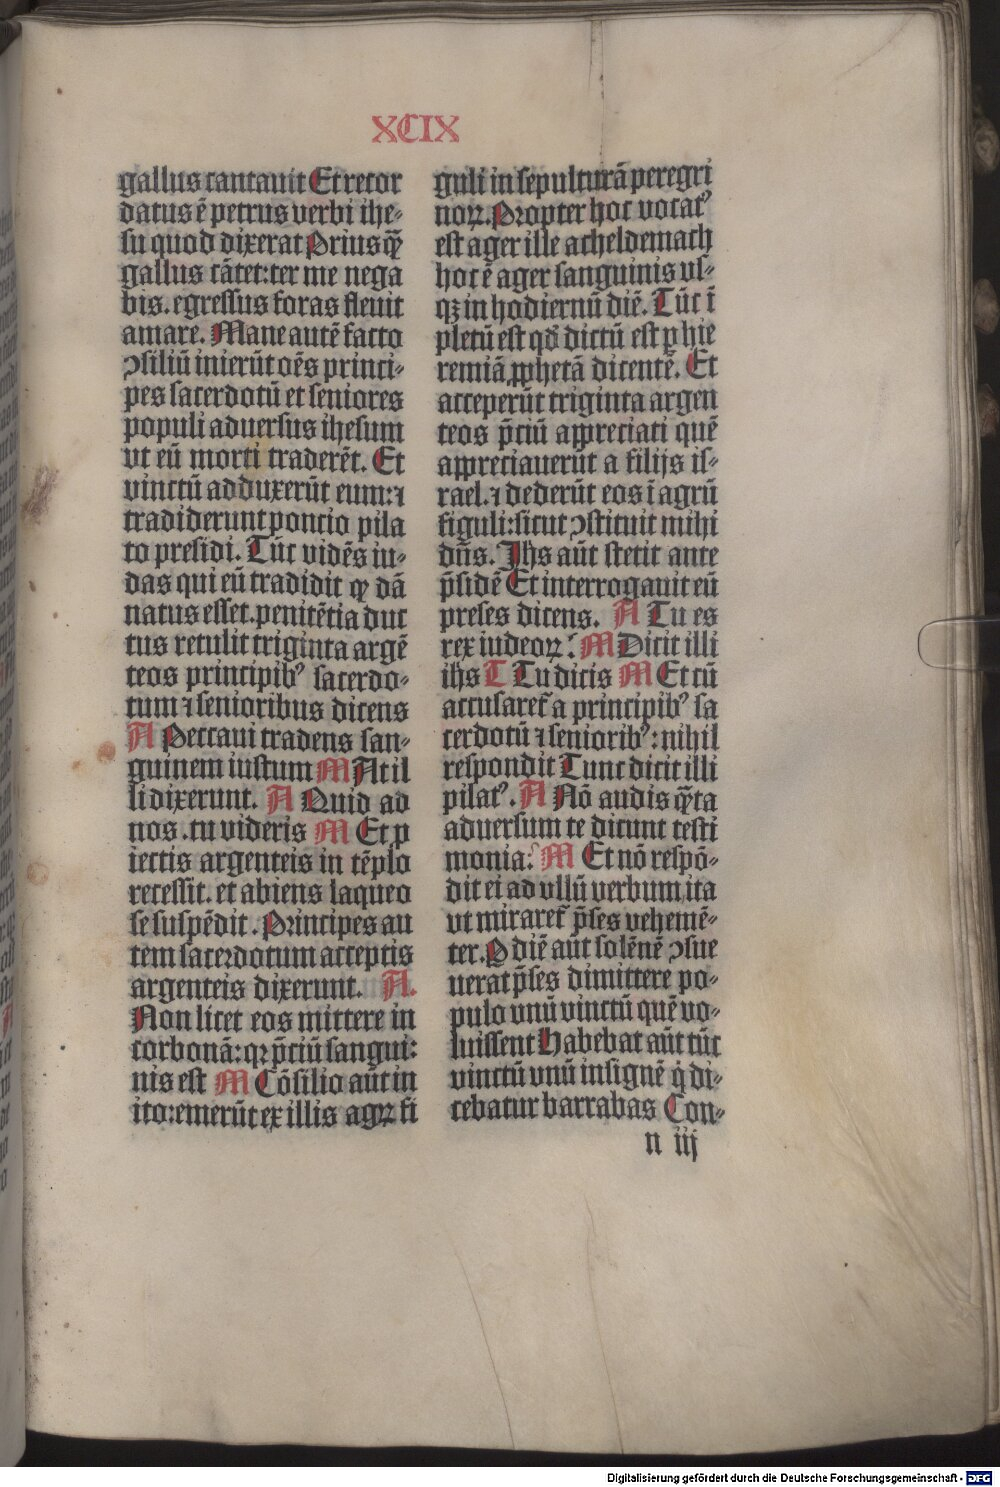 XCIX
gallus cantauit Et recor
datus ē petrus verbi ihe-
su quod dixerat Prius qͣ̄
gallus cātet: ter me nega
bis. egressus foras fleuit
amare. Mane autē facto
ↄsiliū inierūt oēs princi-
pes sacerdotū et seniores
populi aduersus ihesum
vt eū morti traderēt. Et
vinctū adduxerūt eum: ⁊
tradiderunt poncio pila
to presidi. Tūc vidēs iu-
das qui eū tradidit ꝙ dā
natus esset. penitētia duc
tus retulit triginta argē
teos principibꝰ sacerdo-
tum ⁊ senioribus dicens
A Peccaui tradens san-
guinem iustum M At il
li dixerunt. A Quid ad
nos. tu videris M Et ꝓ
iectis argenteis in tēplo
recessit. et abiens laqueo
se suspēdit. Principes au
tem sacerdotum acceptis
argenteis dixerunt. A.
Non licet eos mittere in
corbonā: qꝛ p̄ciū sangui:
nis est M Cōsilio aūt in
ito: emerūt ex illis agꝝ fi
guli in sepulturā peregri
noꝝ. Propter hoc vocatꝰ
est ager ille acheldemach
hoc ē ager sanguinis vs-
qꝫ in hodiernū diē. Tūc ī
pletū est qd̄ dictū est ꝑ hie
remiā ꝓphetā dicentē. Et
acceperūt triginta argen
teos p̄ciū appreciati quē
appreciauerūt a filijs is-
rael. ⁊ dederūt eos ī agrū
figuli: sicut ↄstituit mihi
dn̄s. Ihs aūt stetit ante
p̄sidē Et interrogauit eū
preses dicens. A Tu es
rex iudeoꝝ? M Dicit illi
ihs T Tu dicis M Et cū
accusaret᷑ a principibꝰ sa
cerdotū ⁊ senioribꝰ: nihil
respondit Tunc dicit illi
pilatꝰ. A Nō audis qͣ̄ta
aduersum te dicunt testi
monia? M Et nō respō-
dit ei ad vllū verbum, ita
vt miraret᷑ p̄ses vehemē-
ter. P diē aūt solēnē ↄsue
uerat p̄ses dimittere po-
pulo vnū vinctū quē vo-
luissent Habebat aūt tūc
vinctū vnū insignē q̇ di-
cebatur barrabas Con-
n iij
Digitalisierung gefördert durch die Deutsche Forschungsgemeinschaft - DFG